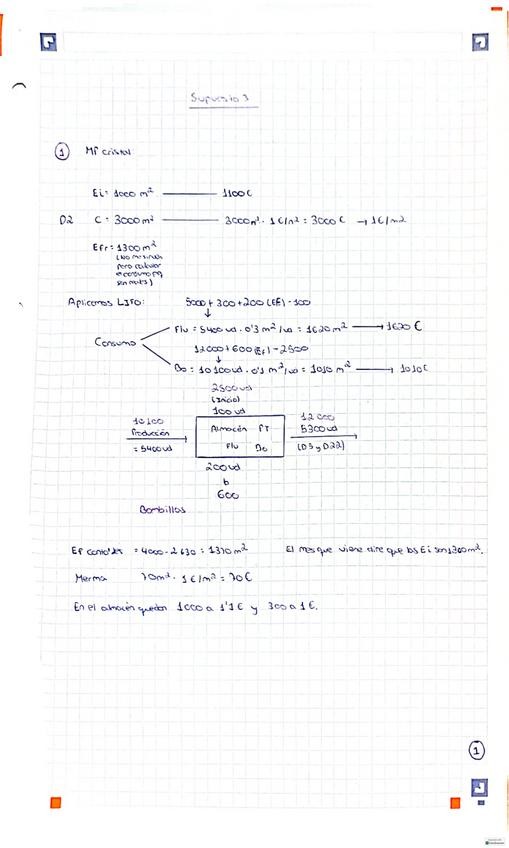 Supuesto 3
① MP cristal:
Ei = 1000 m² 1100 €
D2 C = 3000 m² 3000 m² · 1 €/m² = 3000 € → 1 €/m²
Efr = 1300 m²
(no me sirve
para calcular
el consumo pq
son reales)
Aplicamos LIFO: 5000 + 300 + 200 (EF) - 100
↓
Consumo
Flu = 5400 ud · 0'3 m²/ud = 1620 m² → 1620 €
12000 + 600 (EF) - 2500
↓
Bo = 10100 ud · 0'1 m²/ud = 1010 m² → 1010 €
2500 ud
(Inicio)
100 ud
10100
Producción
= 5400 ud
Almacén PT
Flu Bo
12000
5300 ud
(D3 y D22)
200 ud
b
600
Bombillas
Ef contables = 4000 - 2630 = 1370 m² El mes que viene dire que las Ei son 1300 m².
Merma 70 m² · 1 €/m² = 70 €
En el almacén quedan 1000 a 1'1 € y 300 a 1 €.
①